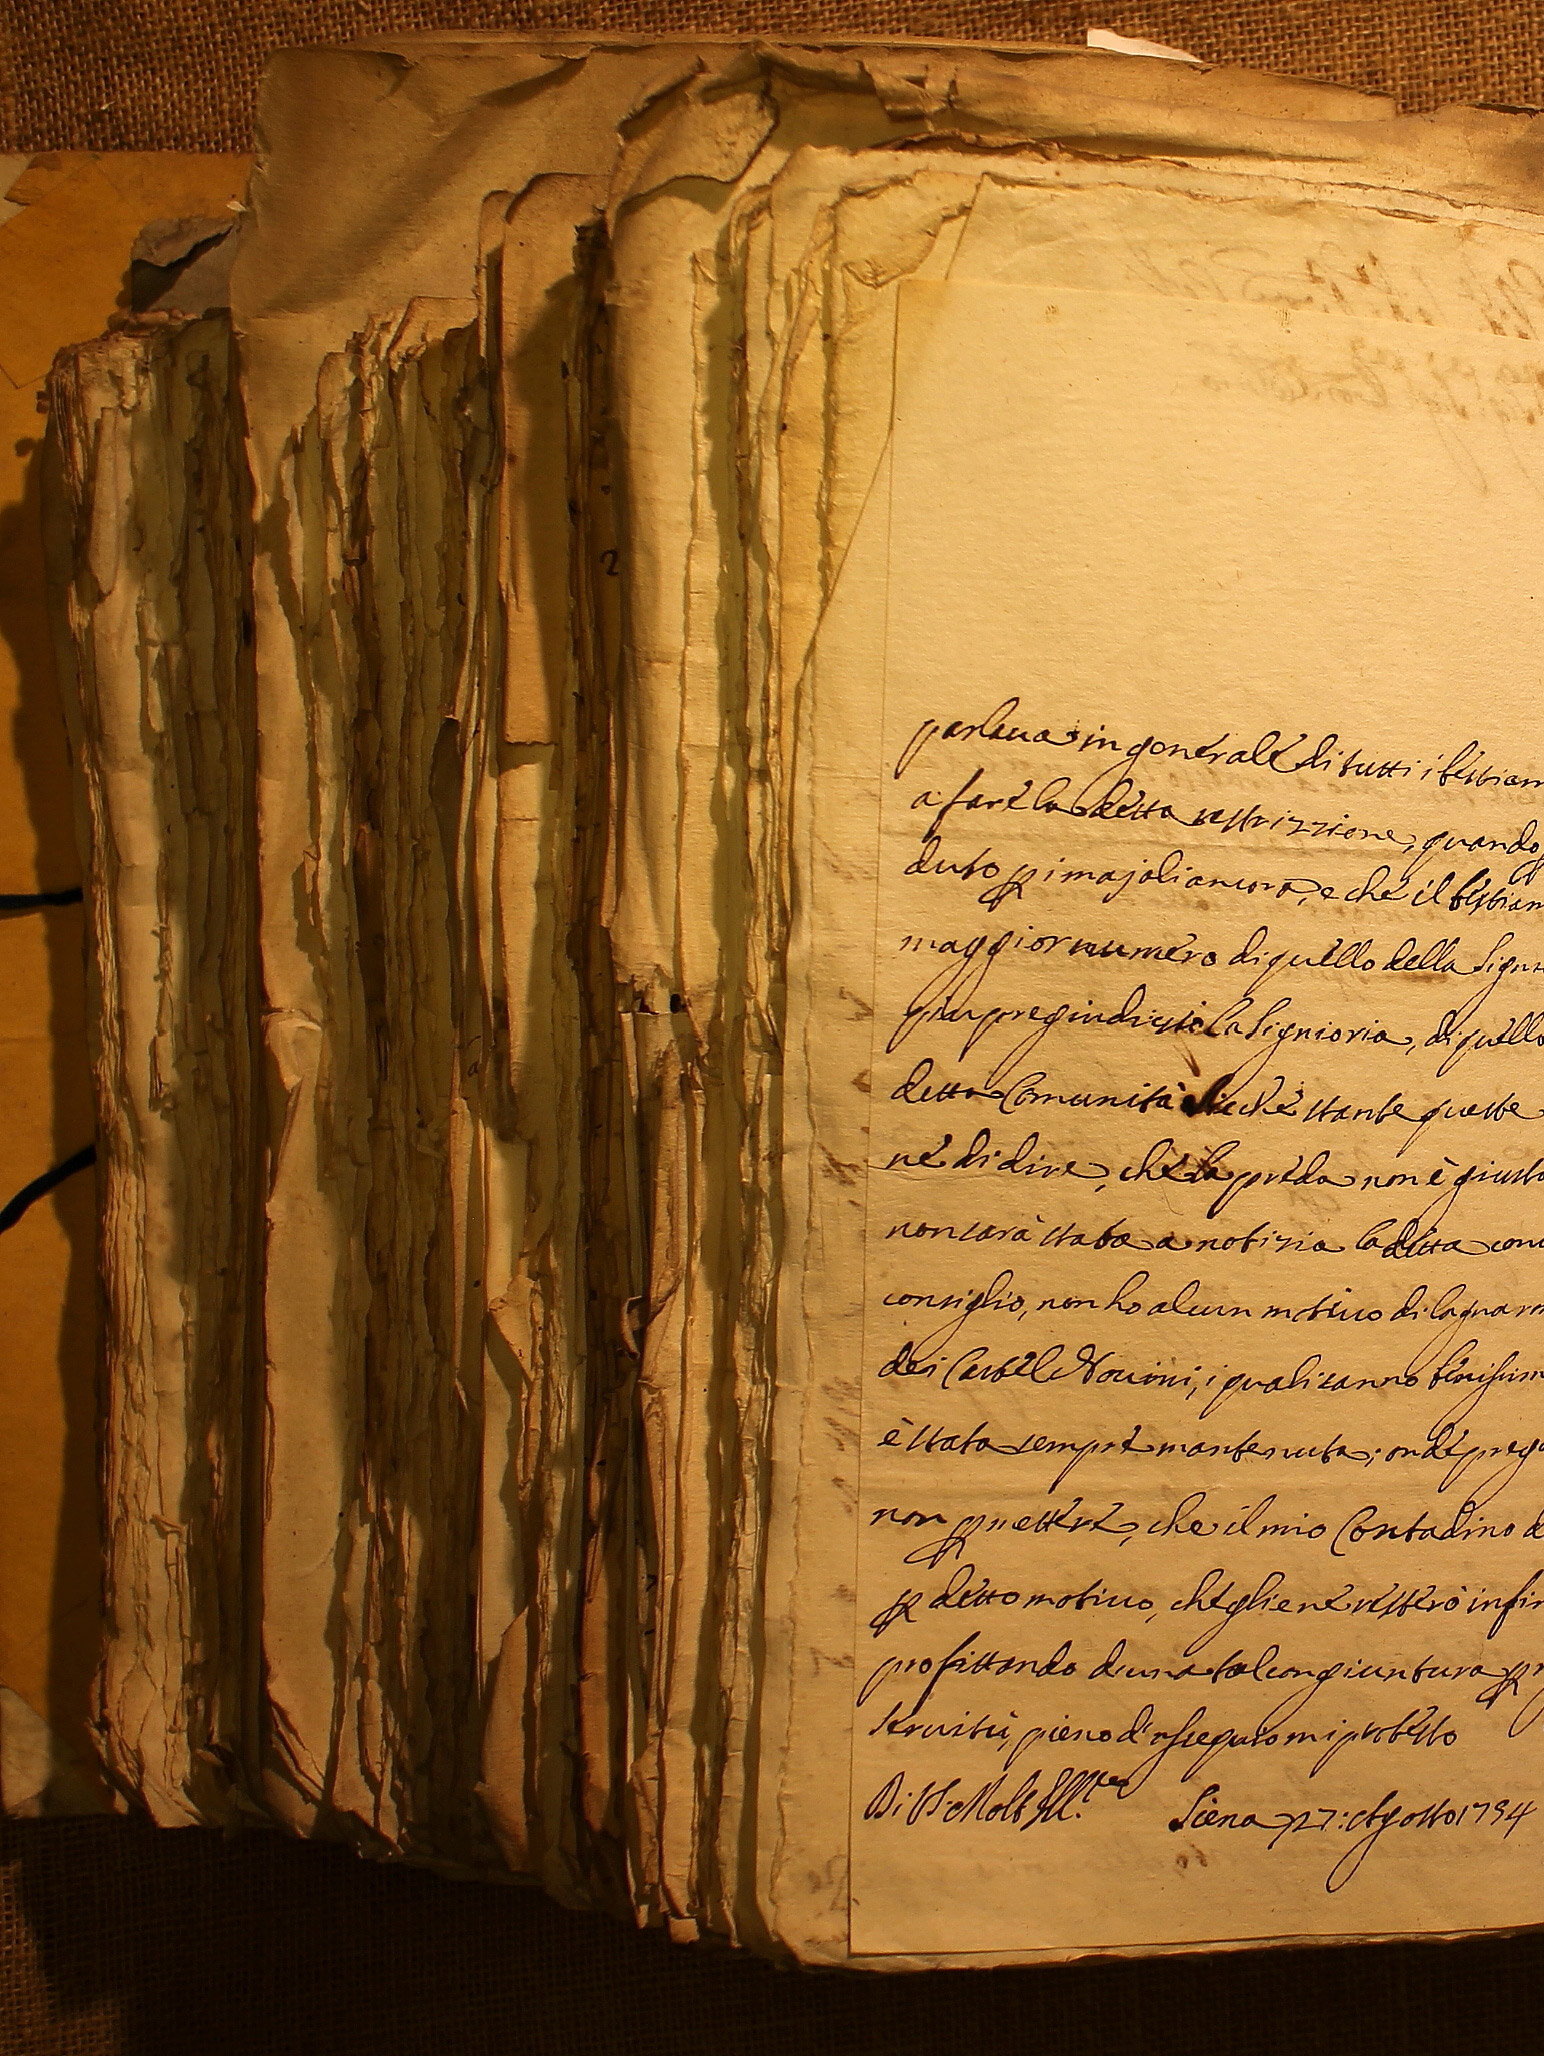 parlaua in generale di tutti i bestiam
a fare la detta restrizzione, quando
duto p i majali ancora, e che il bestiam
maggior numero di quello della Signo
piu pregiudizio la Signioria, di quello
detta Comunità Sicche stante queste
ne di dire, che la preda non è giusta
non sarà stata a notizia la detta conu
consiglio, non ho alcun motiuo di lagnarm
dei Castel Nouini, i quali sanno benissim
è stata sempre mantenuta; onde prego
non pmettere, che il mio Contadino d
p detto motiuo, che gliene resterò infin
profittando d'una tal congiuntura p
seruitù, pieno d'ossequio mi protesto
Di VS Molt Ill.
Siena 27: Agosto 1794